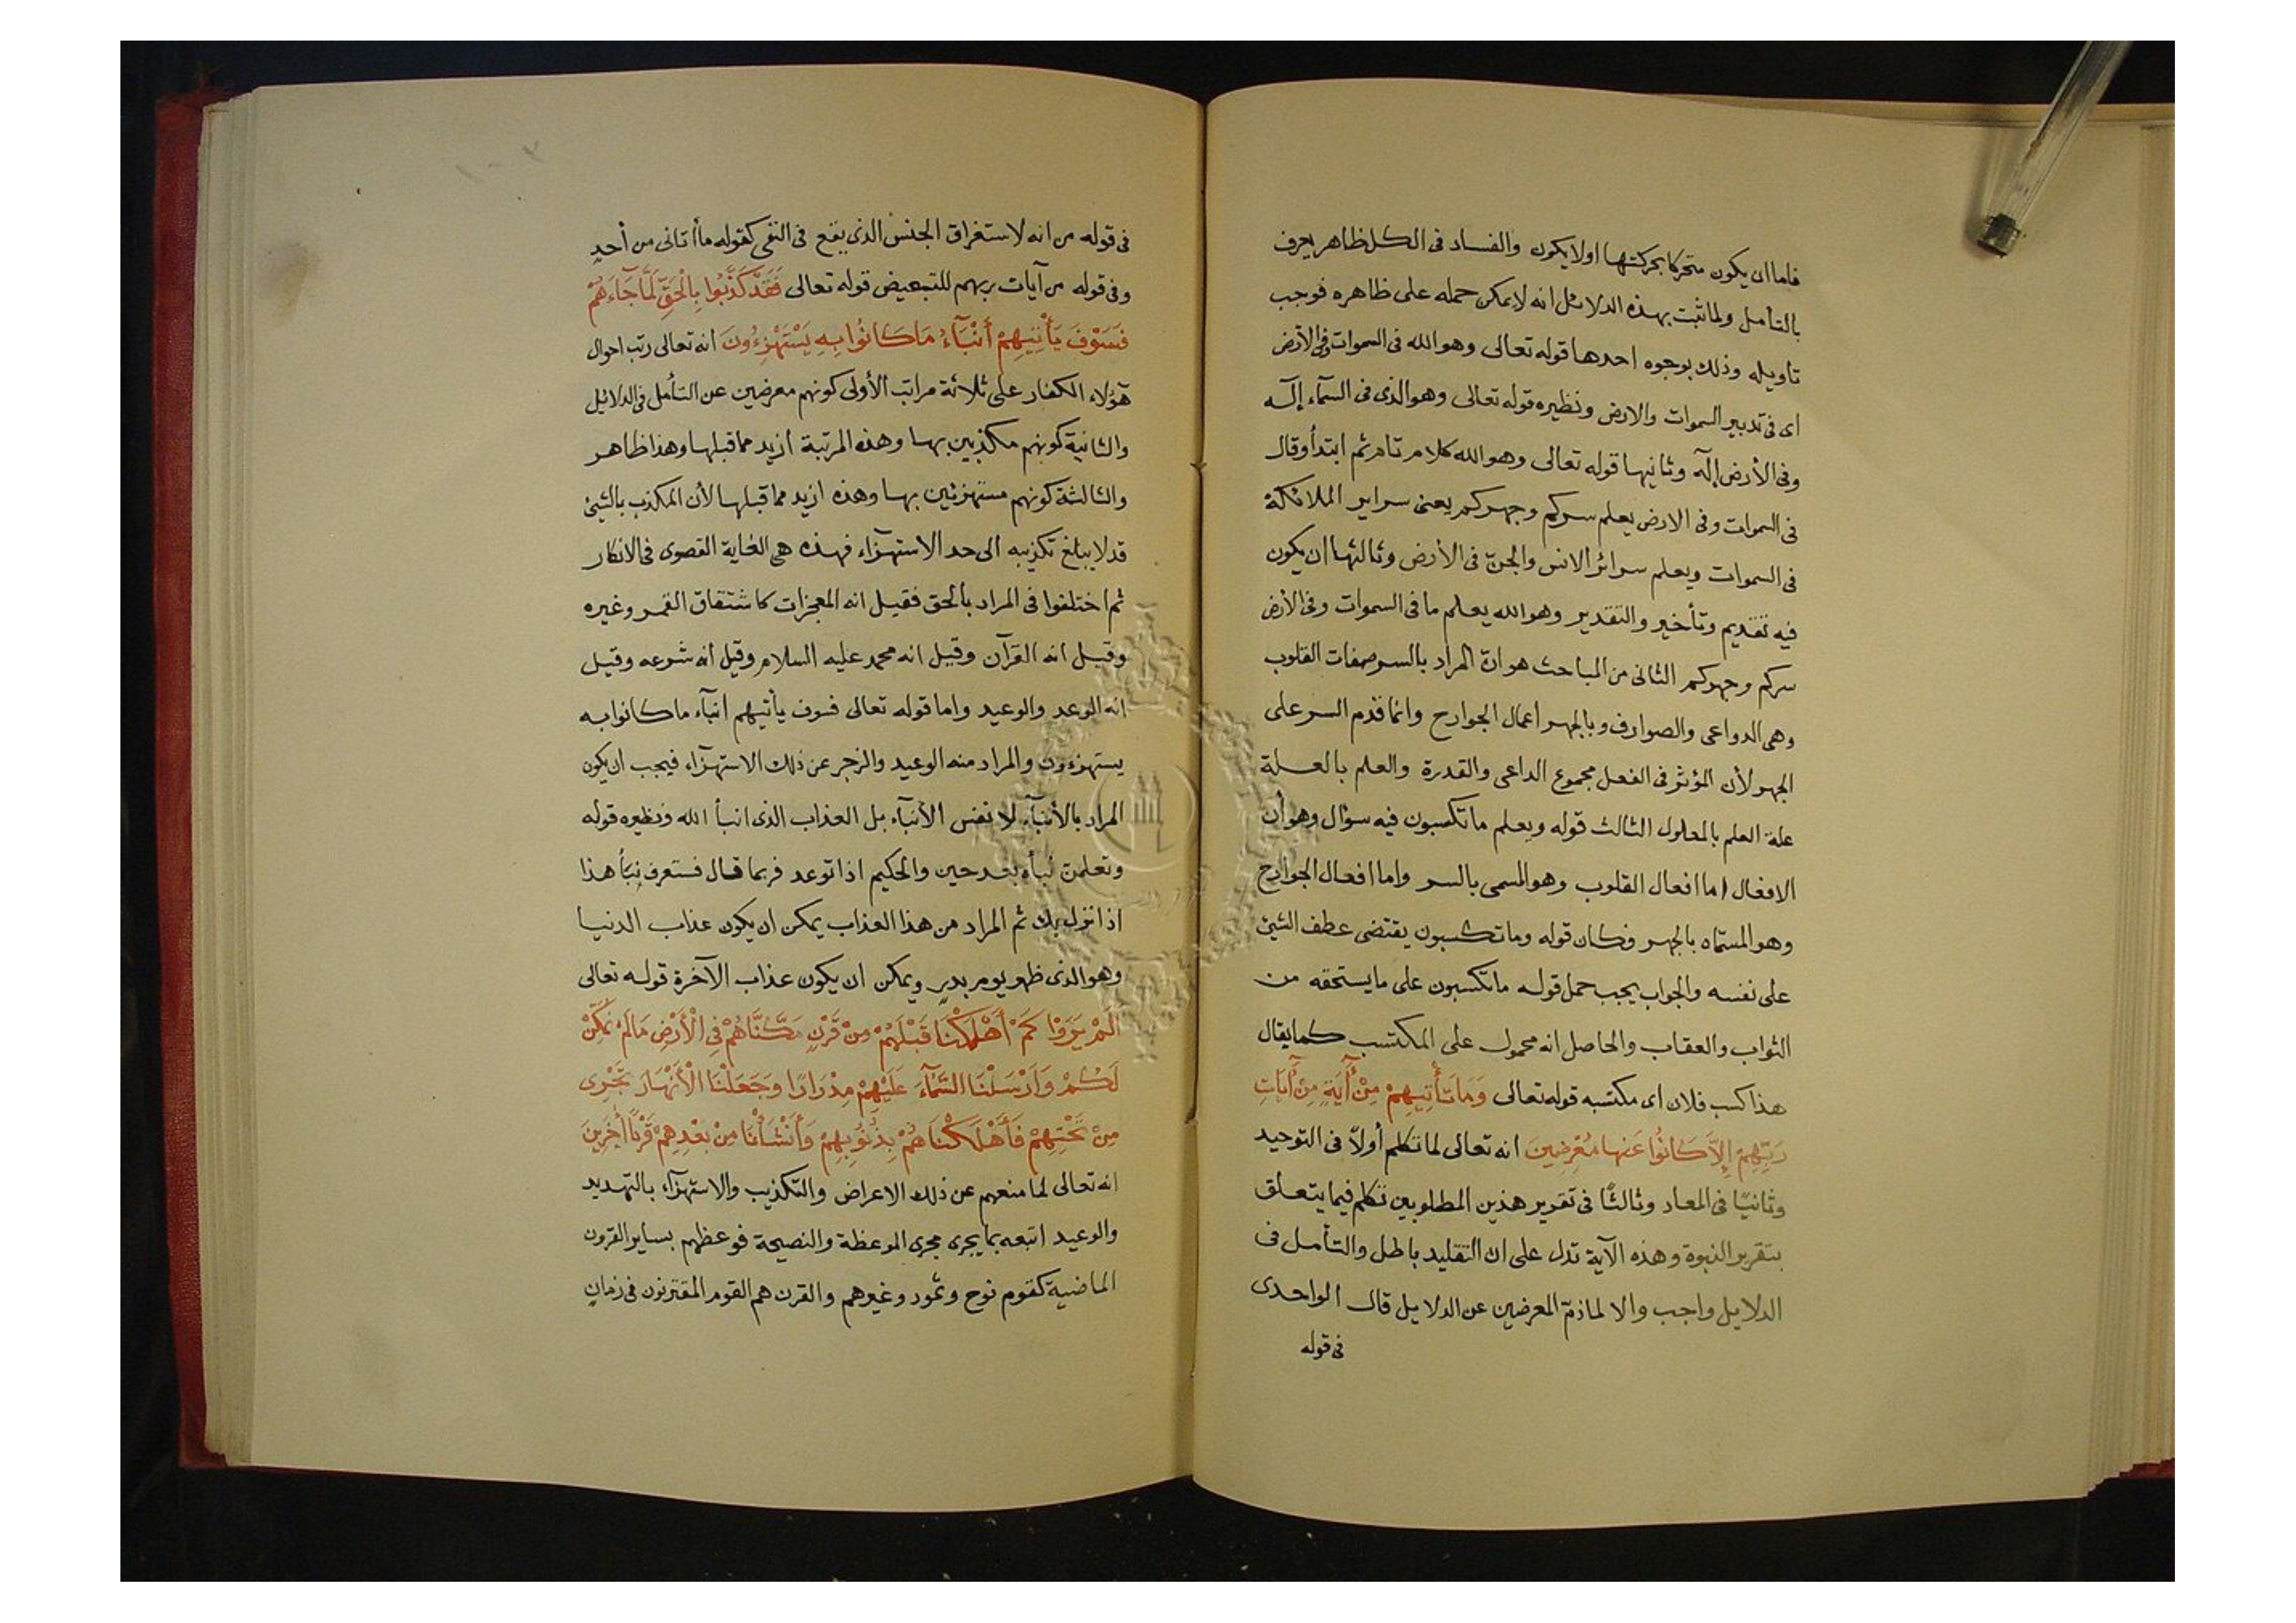 فاما ان يكون متحركا بحركتها اولا يكون والفساد فى الكل ظاهر يعرف
بالتأمل ولما ثبت بهذه الدلائل انه لا يمكن حمله على ظاهره فوجب
تاويله وذلك بوجوه احدها قوله تعالى وهو الله فى السموات وفى الارض
اى فى تدبير السموات والارض ونظيره قوله تعالى وهو الذى فى السمآء إلٓه
وفى الأرض إلٓه وثانيها قوله تعالى وهو الله كلام تام ثم ابتدأ وقال
فى السموات وفى الارض يعلم سركم وجهركم يعنى سراير الملائكة
فى السموات ويعلم سرائر الانس والجنّ فى الأرض وثالثها ان يكون
فيه تقديم وتأخير والتقدير وهو الله يعلم ما فى السموات وفى الأرض
سركم وجهركم الثانى من المباحث هو انّ المراد بالسر صفات القلوب
وهى الدواعى والصوارف وبالجهر أعمال الجوارح وانما قدم السر على
الجهر لأن المؤثر فى الفعل مجموع الداعى والقدرة والعلم بالعلة
علة العلم بالمعلول الثالث قوله ويعلم ما تكسبون فيه سؤال وهو أن
الافعال اما افعال القلوب وهو المسمى بالسر واما افعال الجوارح
وهو المسمّاه بالجهر فكان قوله وما تكسبون يقتضى عطف الشئ
على نفسه والجواب يجب حمل قوله ما تكسبون على ما يستحقه من
الثواب والعقاب والحاصل انه محمول على المكتسب كما يقال
هذا كسب فلان اى مكتسبه قوله تعالى وَمَا تَأْتِيهِمْ مِنْ آَيَةٍ مِنْ آَيَاتِ
رَبِّهِمْ إِلاَّ كَانُوا عَنها مُعْرِضِينَ انه تعالى لما تكلم أولاً فى التوحيد
وثانيًا فى المعاد وثالثًا فى تقرير هذين المطلوبين تكلم فيما يتعلق
بتقرير النبوة وهذه الآية تدل على ان التقليد باطل والتأمل فى
الدلايل واجب والا لما ذمّ المعرضين عن الدلايل قال الواحدى
فى قوله
فى قوله من انه لاستغراق الجنس الذى يقع فى النفى كقوله ما أتانى من أحدٍ
وفى قوله من آيات ربهم للتبعيض قوله تعالى فَقَدْ كَذَّبُوا بِالْحَقِّ لَمَّا جَآءَهُمْ
فَسَوْفَ يَأْتِيهِمْ أَنْبَآءُ مَا كَانُوا بِهِ يَسْتَهْزِءُونَ انه تعالى رتب احوال
هٓؤلاء الكفار على ثلاثة مراتب الأولى كونهم معرضين عن التأمل فى الدلائيل
والثانية كونهم مكذبين بها وهذه المرتبة أزيد مما قبلها وهذا ظاهر
والثالثة كونهم مستهزئين بها وهذه ازيد مما قبلها لأن المكذب بالشيئ
قد لا يبلغ تكذيبه الى حد الاستهزآء فهذه هى الغاية القصوى فى الانكار
ثم اختلفوا فى المراد بالحق فقيل انه المعجزات كاشتقاق القمر وغيره
وقيل انه القرآن وقيل انه محمد عليه السلام وقيل أنه شرعه وقيل
انه الوعد والوعيد واما قوله تعالى فسوف يأتيهم انبآء ما كانوا به
يستهزءون والمراد منه الوعيد والزجر عن ذلك الاستهزآء فيجب ان يكون
المراد بالأنبآء لا نفس الأنبآء بل العذاب الذى انبأ الله ونظيره قوله
وتعلمن نبأه بعد حين والحكيم اذا توعد فربما قال فستعرف نبَأ هذا
اذا نزل بك ثم المراد من هذا العذاب يمكن ان يكون عذاب الدنيا
وهو الذى ظهر يوم بدرٍ ويمكن ان يكون عذاب الآخرة قوله تعالى
أَلَمْ يَرَوْا كَمْ أَهْلَكْنَا قَبْلَهُمْ مِنْ قَرْنٍ مَكَّنَّاهُمْ فِى الْأَرْضِ مَا لَمْ نُمَكِّنْ
لَكُمْ وَأَرْسَلْنَا السَّمَآءَ عَلَيْهِمْ مِدْرَارًا وَجَعَلْنَا الْأَنْهَارَ تَجْرِى
مِنْ تَحْتِهِمْ فَأَهْلَكْنَاهُمْ بِذُنُوبِهِمْ وَأَنْشَأْنَا مِنْ بَعْدِهِمْ قَرْنًا أَخَرِينَ
انه تعالى لما منعهم عن ذلك الاعراض والتكذيب والاستهزآء بالتهديد
والوعيد اتبعه بما يجرى مجرى الموعظة والنصيحة فوعظهم بساير القرون
الماضية كقوم نوح وثمود وغيرهم والقرن هم القوم المقترنون فى زمانٍ